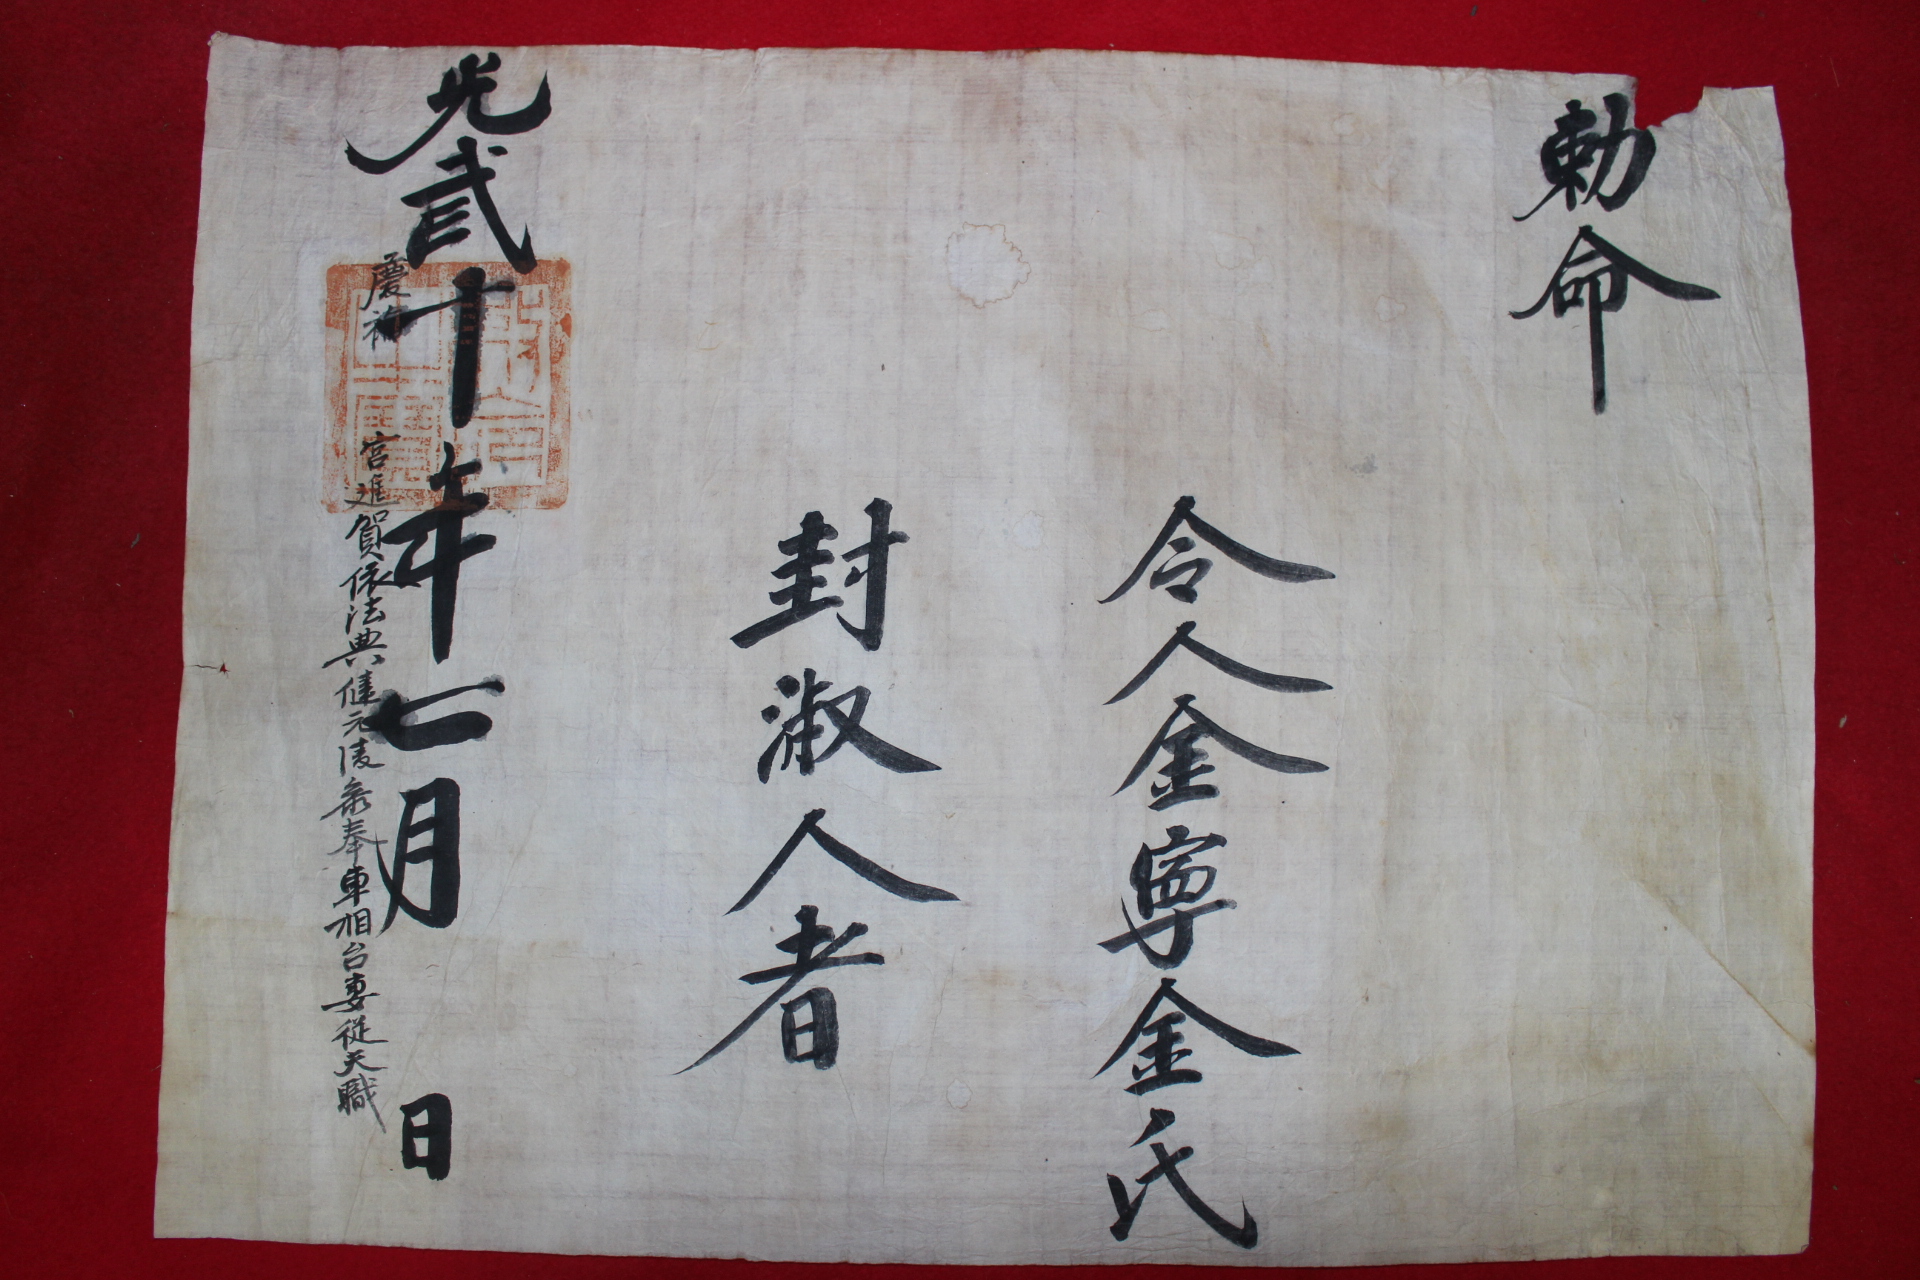 勅命
令人金寧金氏
封淑人者
光貳十年七月 日
慶祐 宮進賀依法典健元陵叅奉車相台妻從夫職